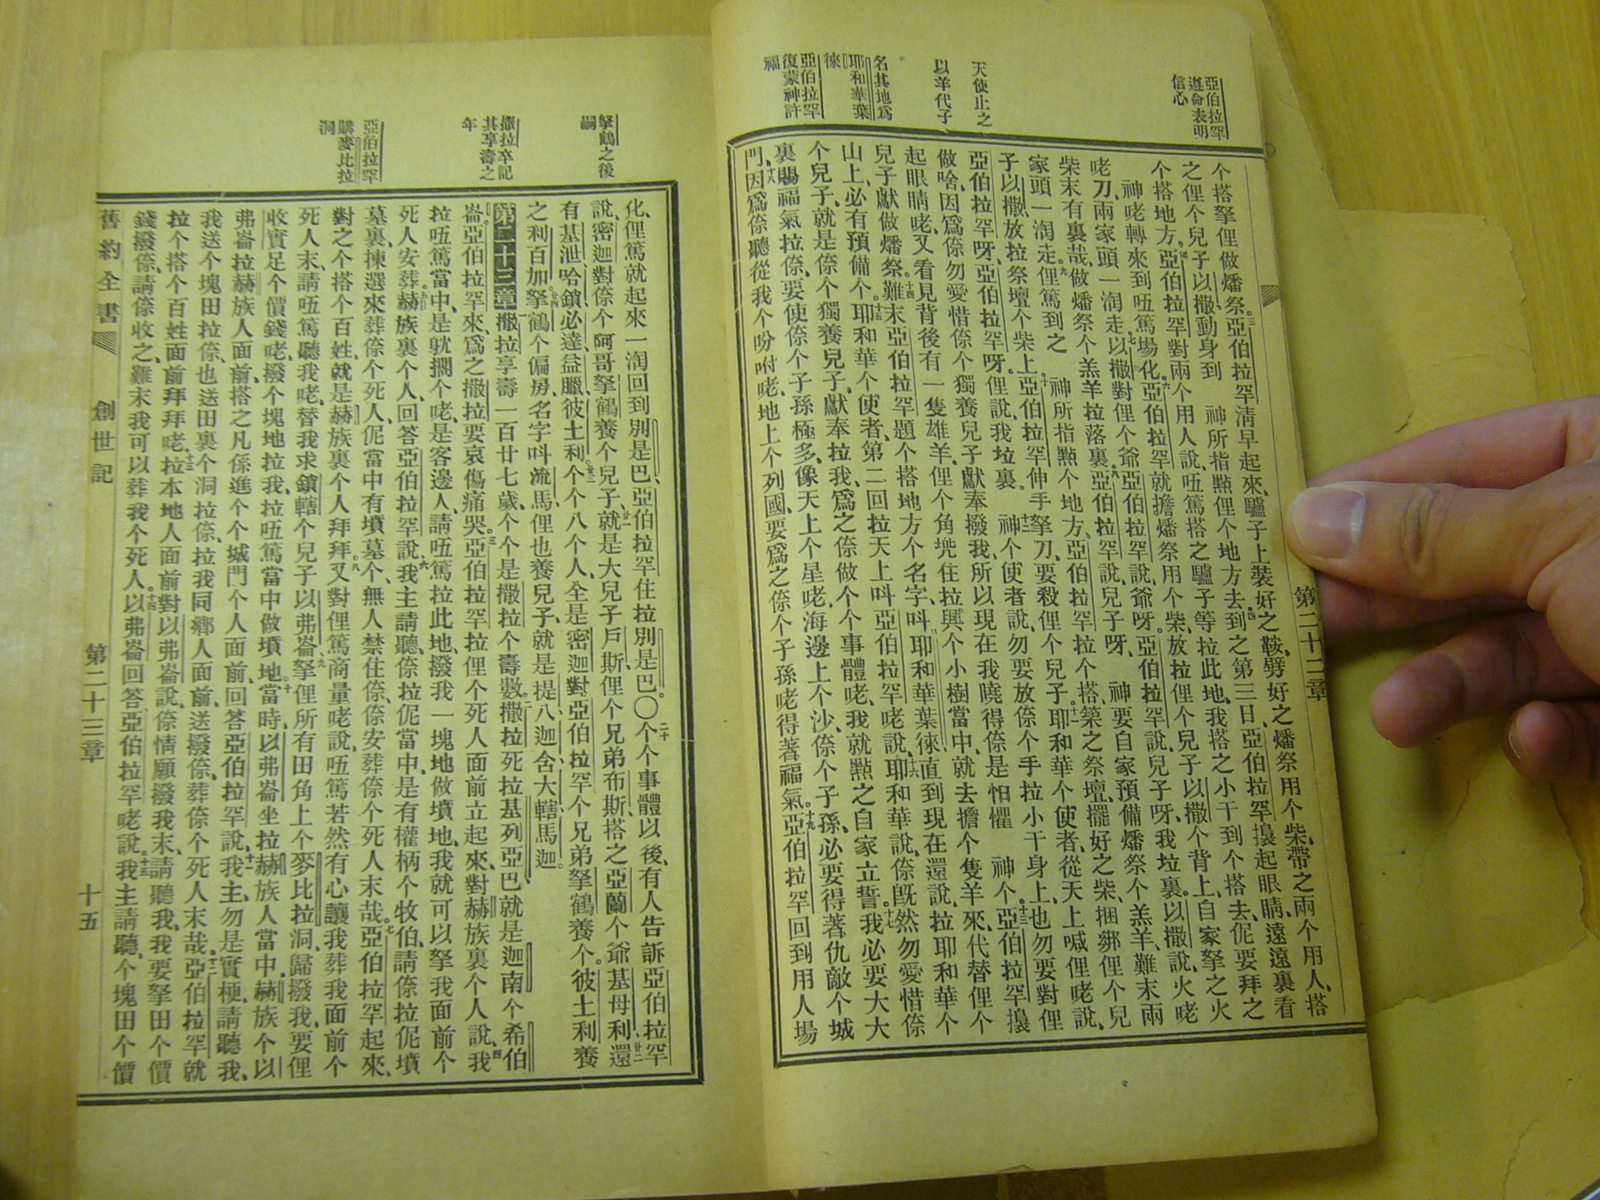 亞伯拉罕
遵命表明
信心
天使止之
以羊代子
名其地爲
耶和華葉
徠
亞伯拉罕
復蒙神許
福
第二十二章
个搭拏俚做燔祭亞伯拉罕清早起來驢子上裝好之鞍劈好之燔祭用个柴帶之兩个用人搭
之俚个兒子以撒動身到　神所指㸃俚个地方去到之第三日亞伯拉罕擡起眼睛遠遠裏看
个搭地方亞伯拉罕對兩个用人說吾篤搭之驢子等拉此地我搭之小干到个搭去伲要拜之
神咾轉來到吾篤場化亞伯拉罕就擔燔祭用个柴放拉俚个兒子以撒个背上自家拏之火
咾刀兩家頭一淘走以撒對俚个爺亞伯拉罕說爺呀亞伯拉罕說兒子呀我垃裏以撒說火咾
柴末有裏哉做燔祭个羔羊拉落裏亞伯拉罕說兒子呀　神要自家預備燔祭个羔羊難末兩
家頭一淘走俚篤到之　神所指㸃个地方亞伯拉罕拉个搭築之祭壇擺好之柴捆綁俚个兒
子以撒放拉祭壇个柴上亞伯拉罕伸手拏刀要殺俚个兒子耶和華个使者從天上喊俚咾說
亞伯拉罕呀亞伯拉罕呀俚說我垃裏　神个使者說勿要放倷个手拉小干身上也勿要對俚
做啥因爲倷勿愛惜倷个獨養兒子獻奉撥我所以現在我曉得倷是怕懼　神个亞伯拉罕擡
起眼睛咾又看見背後有一隻雄羊俚个角兠住拉興个小樹當中就去擔个隻羊來代替俚个
兒子獻做燔祭難末亞伯拉罕題个搭地方个名字呌耶和華葉徠直到現在還說拉耶和華个
山上必有預備个耶和華个使者第二回拉天上呌亞伯拉罕咾說耶和華說倷旣然勿愛惜倷
个兒子就是倷个獨養兒子獻奉拉我爲之倷做个个事體咾我就㸃之自家立誓我必要大大
裏賜福氣拉倷要使倷个子孫極多像天上个星咾海邊上个沙倷个子孫必要得著仇敵个城
門因爲倷聽從我个吩咐咾地上个列國要爲之倷个子孫咾得著福氣亞伯拉罕回到用人場
拏鶴之後
嗣
撒拉卒記
其享壽之
年
亞伯拉罕
購麥比拉
洞
化俚篤就起來一淘回到別是巴亞伯拉罕住拉別是巴〇个个事體以後有人告訴亞伯拉罕
說密迦對倷个阿哥拏鶴養个兒子就是大兒子戶斯俚个兄弟布斯搭之亞蘭个爺基母利還
有基泄哈鎖必達益臘彼土利个个八个人全是密迦對亞伯拉罕个兄弟拏鶴養个彼土利養
之利百加拏鶴个偏房名字呌流馬俚也養兒子就是提八迦含大轄馬迦
第二十三章撒拉享壽一百廿七歲个个是撒拉个壽數撒拉死拉基列亞巴就是迦南个希伯
崙亞伯拉罕來爲之撒拉要哀傷痛哭亞伯拉罕拉俚个死人面前立起來對赫族裏个人說我
拉吾篤當中是躭擱个咾是客邊人請吾篤拉此地撥我一塊地做墳地我就可以拏我面前个
死人安葬赫族裏个人回答亞伯拉罕說我主請聽倷拉伲當中是有權柄个牧伯請倷拉伲墳
墓裏揀選來葬倷个死人伲當中有墳墓个無人禁住倷倷安葬倷个死人末哉亞伯拉罕起來
對之个搭个百姓就是赫族裏个人拜拜又對俚篤商量咾說吾篤若然有心讓我葬我面前个
死人末請吾篤聽我咾替我求鎖轄个兒子以弗崙拏俚所有田角上个麥比拉洞歸撥我我要俚
收實足个價錢咾撥个塊地拉我拉吾篤當中做墳地當時以弗崙坐拉赫族人當中赫族个以
弗崙拉赫族人面前搭之凡係進个个城門个人面前回答亞伯拉罕說我主勿是實梗請聽我
我送个塊田拉倷也送田裏个洞拉倷拉我同鄉人面前送撥倷葬倷个死人末哉亞伯拉罕就
拉个搭个百姓面前拜拜咾拉本地人面前對以弗崙說倷情願撥我末請聽我我要拏田个價
錢撥倷請倷收之難末我可以葬我个死人以弗崙回答亞伯拉罕咾說我主請聽个塊田个價
舊約全書　創世記　第二十三章　十五